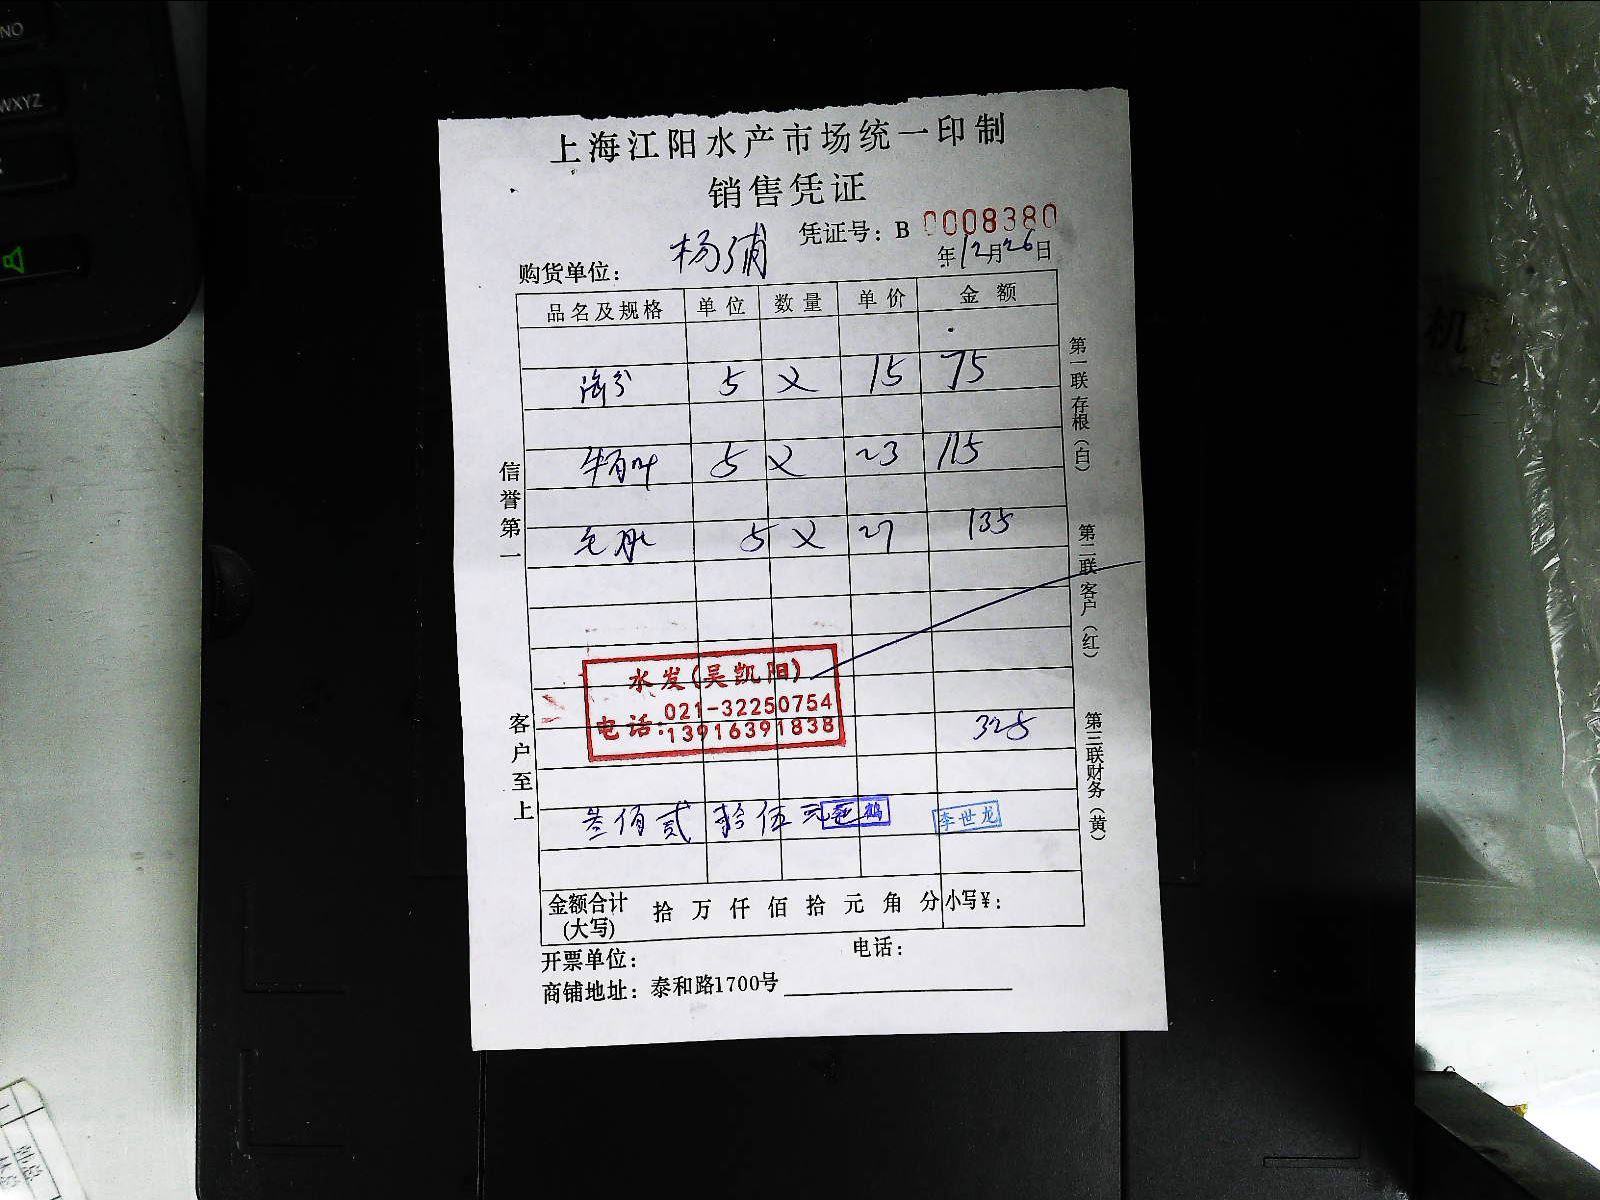 NO
WXYZ
上海江阳水产市场统一印制
销售凭证
凭证号：B 0008380
年12月26日
购货单位： 杨浦
品名及规格 单位 数量 单价 金额
5 × 15 75
牛百叶 5 × 23 115
毛肚 5 × 27 135
水发（吴凯阳）
电话：021-32250754
13916391838
325
叁佰贰拾伍元
李世龙
金额合计（大写） 拾 万 仟 佰 拾 元 角 分 小写¥：
开票单位： 电话：
商铺地址：泰和路1700号
信誉第一
客户至上
第一联存根（白）
第二联客户（红）
第三联财务（黄）
机